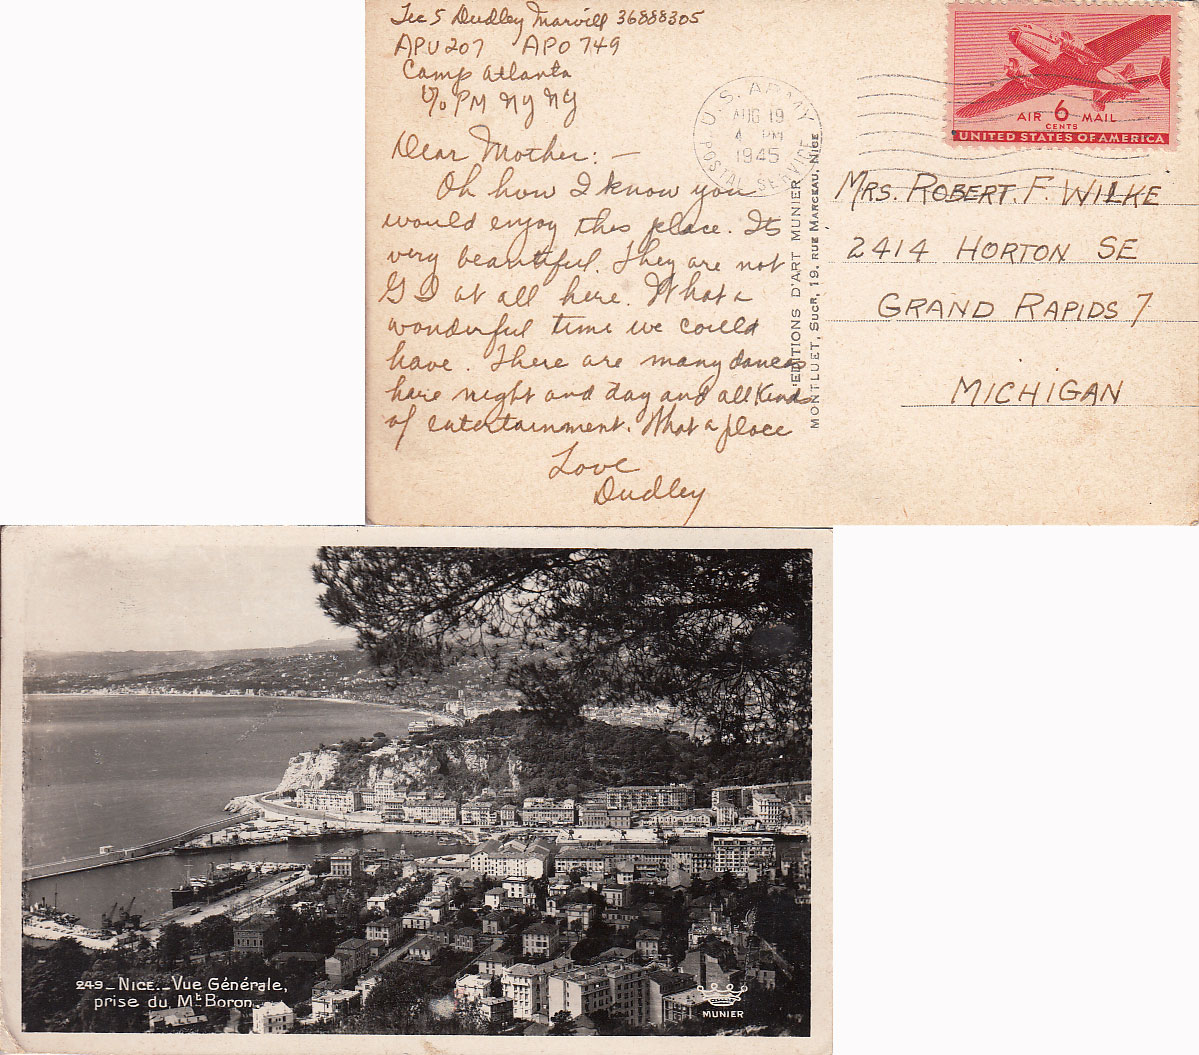 Tec 5 Dudley Marvill 36888305
APU 207 APO 749
Camp Atlanta
c/o PM NY NY
Dear Mother: —
Oh how I know you
would enjoy this place. Its
very beautiful. They are not
G I at all here. What a
wonderful time we could
have. There are many dances
here night and day and all kinds
of entertainment. What a place
Love
Dudley
U.S. ARMY
AUG 19
4 PM
1945
POSTAL SERVICE
AIR 6 MAIL
CENTS
UNITED STATES OF AMERICA
EDITIONS D'ART MUNIER
MONTLUET, SUCR, 19, RUE MARCEAU, NICE
MRS. ROBERT. F. WILKE
2414 HORTON SE
GRAND RAPIDS 7
MICHIGAN
249_NICE._Vue Générale,
prise du Mt Boron.
MUNIER